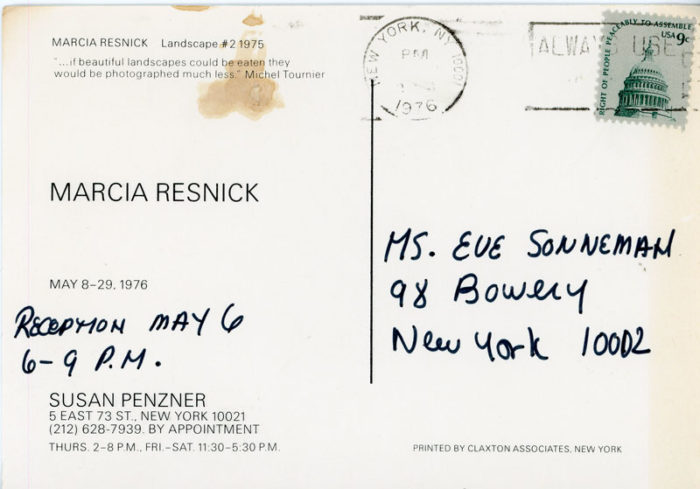 MARCIA RESNICK Landscape #2 1975
"...if beautiful landscapes could be eaten they
would be photographed much less." Michel Tournier
NEW YORK, NY
PM
1976
ALWAYS USE
RIGHT OF PEOPLE PEACEABLY TO ASSEMBLE
USA 9c
MARCIA RESNICK
MAY 8-29, 1976
RECEPTION MAY 6
6-9 P.M.
MS. EVE SONNEMAN
98 Bowery
New York 10002
SUSAN PENZNER
5 EAST 73 ST., NEW YORK 10021
(212) 628-7939. BY APPOINTMENT
THURS. 2-8 P.M., FRI.-SAT. 11:30-5:30 P.M.
PRINTED BY CLAXTON ASSOCIATES, NEW YORK